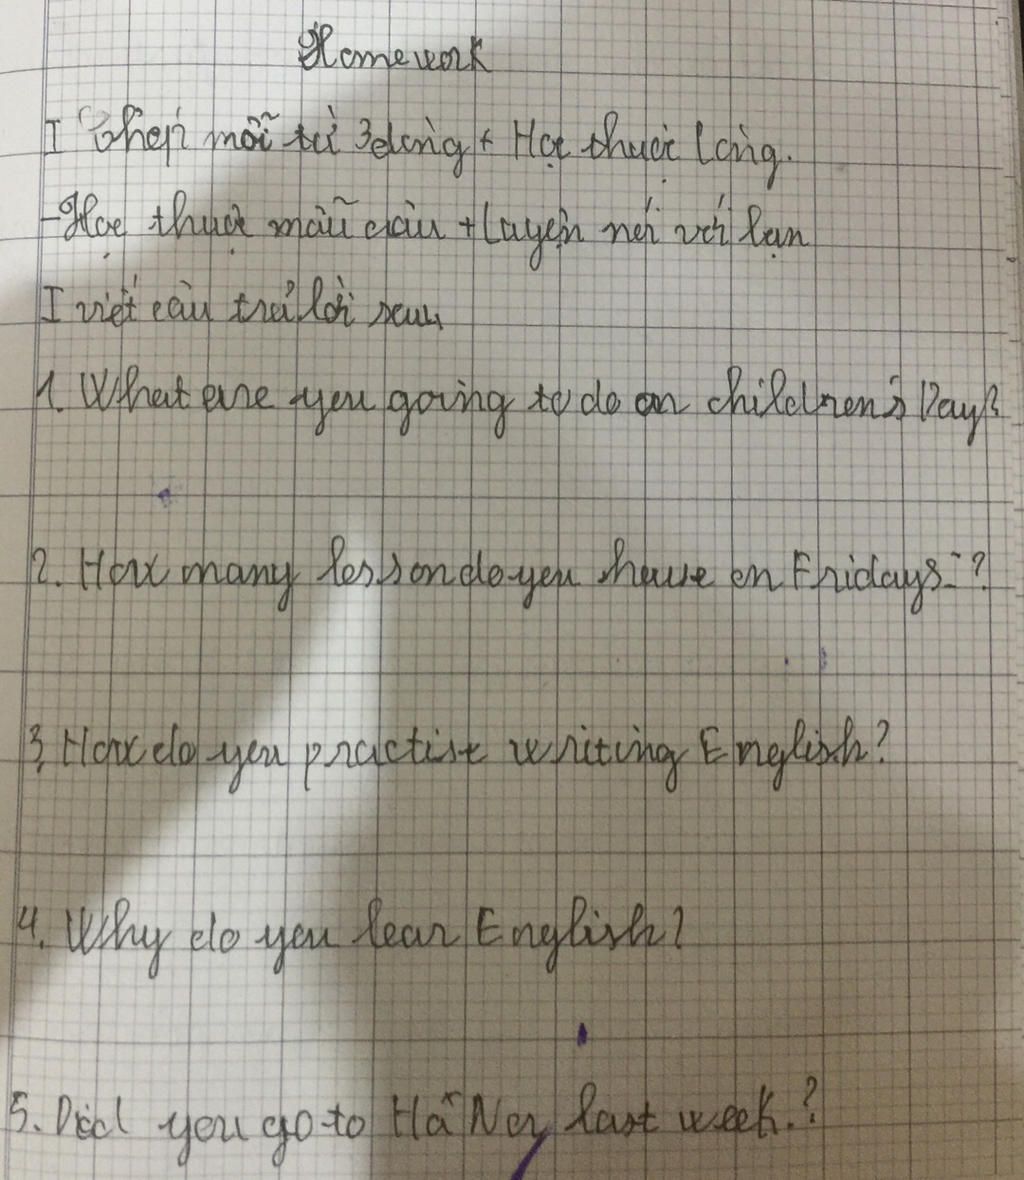 Homework
I Chép mỗi từ 3 dòng + Học thuộc lòng.
- Học thuộc mẫu câu + luyện nói với bạn
I viết câu trả lời sau
1. What are you going to do on children's Day?
2. How many lesson do you have on Fridays?
3, How do you practise writing English?
4. Why do you lear English?
5. Did you go to Hà Nội last week.?